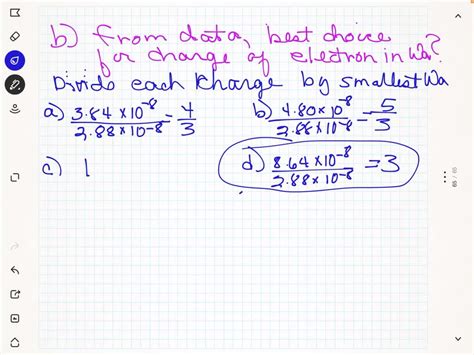 b) From data, best choice
for charge of electron in Wa?
Divide each charge by smallest Wa
a) 3.84 x 10⁻⁸ / 2.88 x 10⁻⁸ = 4/3 b) 4.80 x 10⁻⁸ / 2.88 x 10⁻⁸ = 5/3
c) 1 d) 8.64 x 10⁻⁸ / 2.88 x 10⁻⁸ = 3